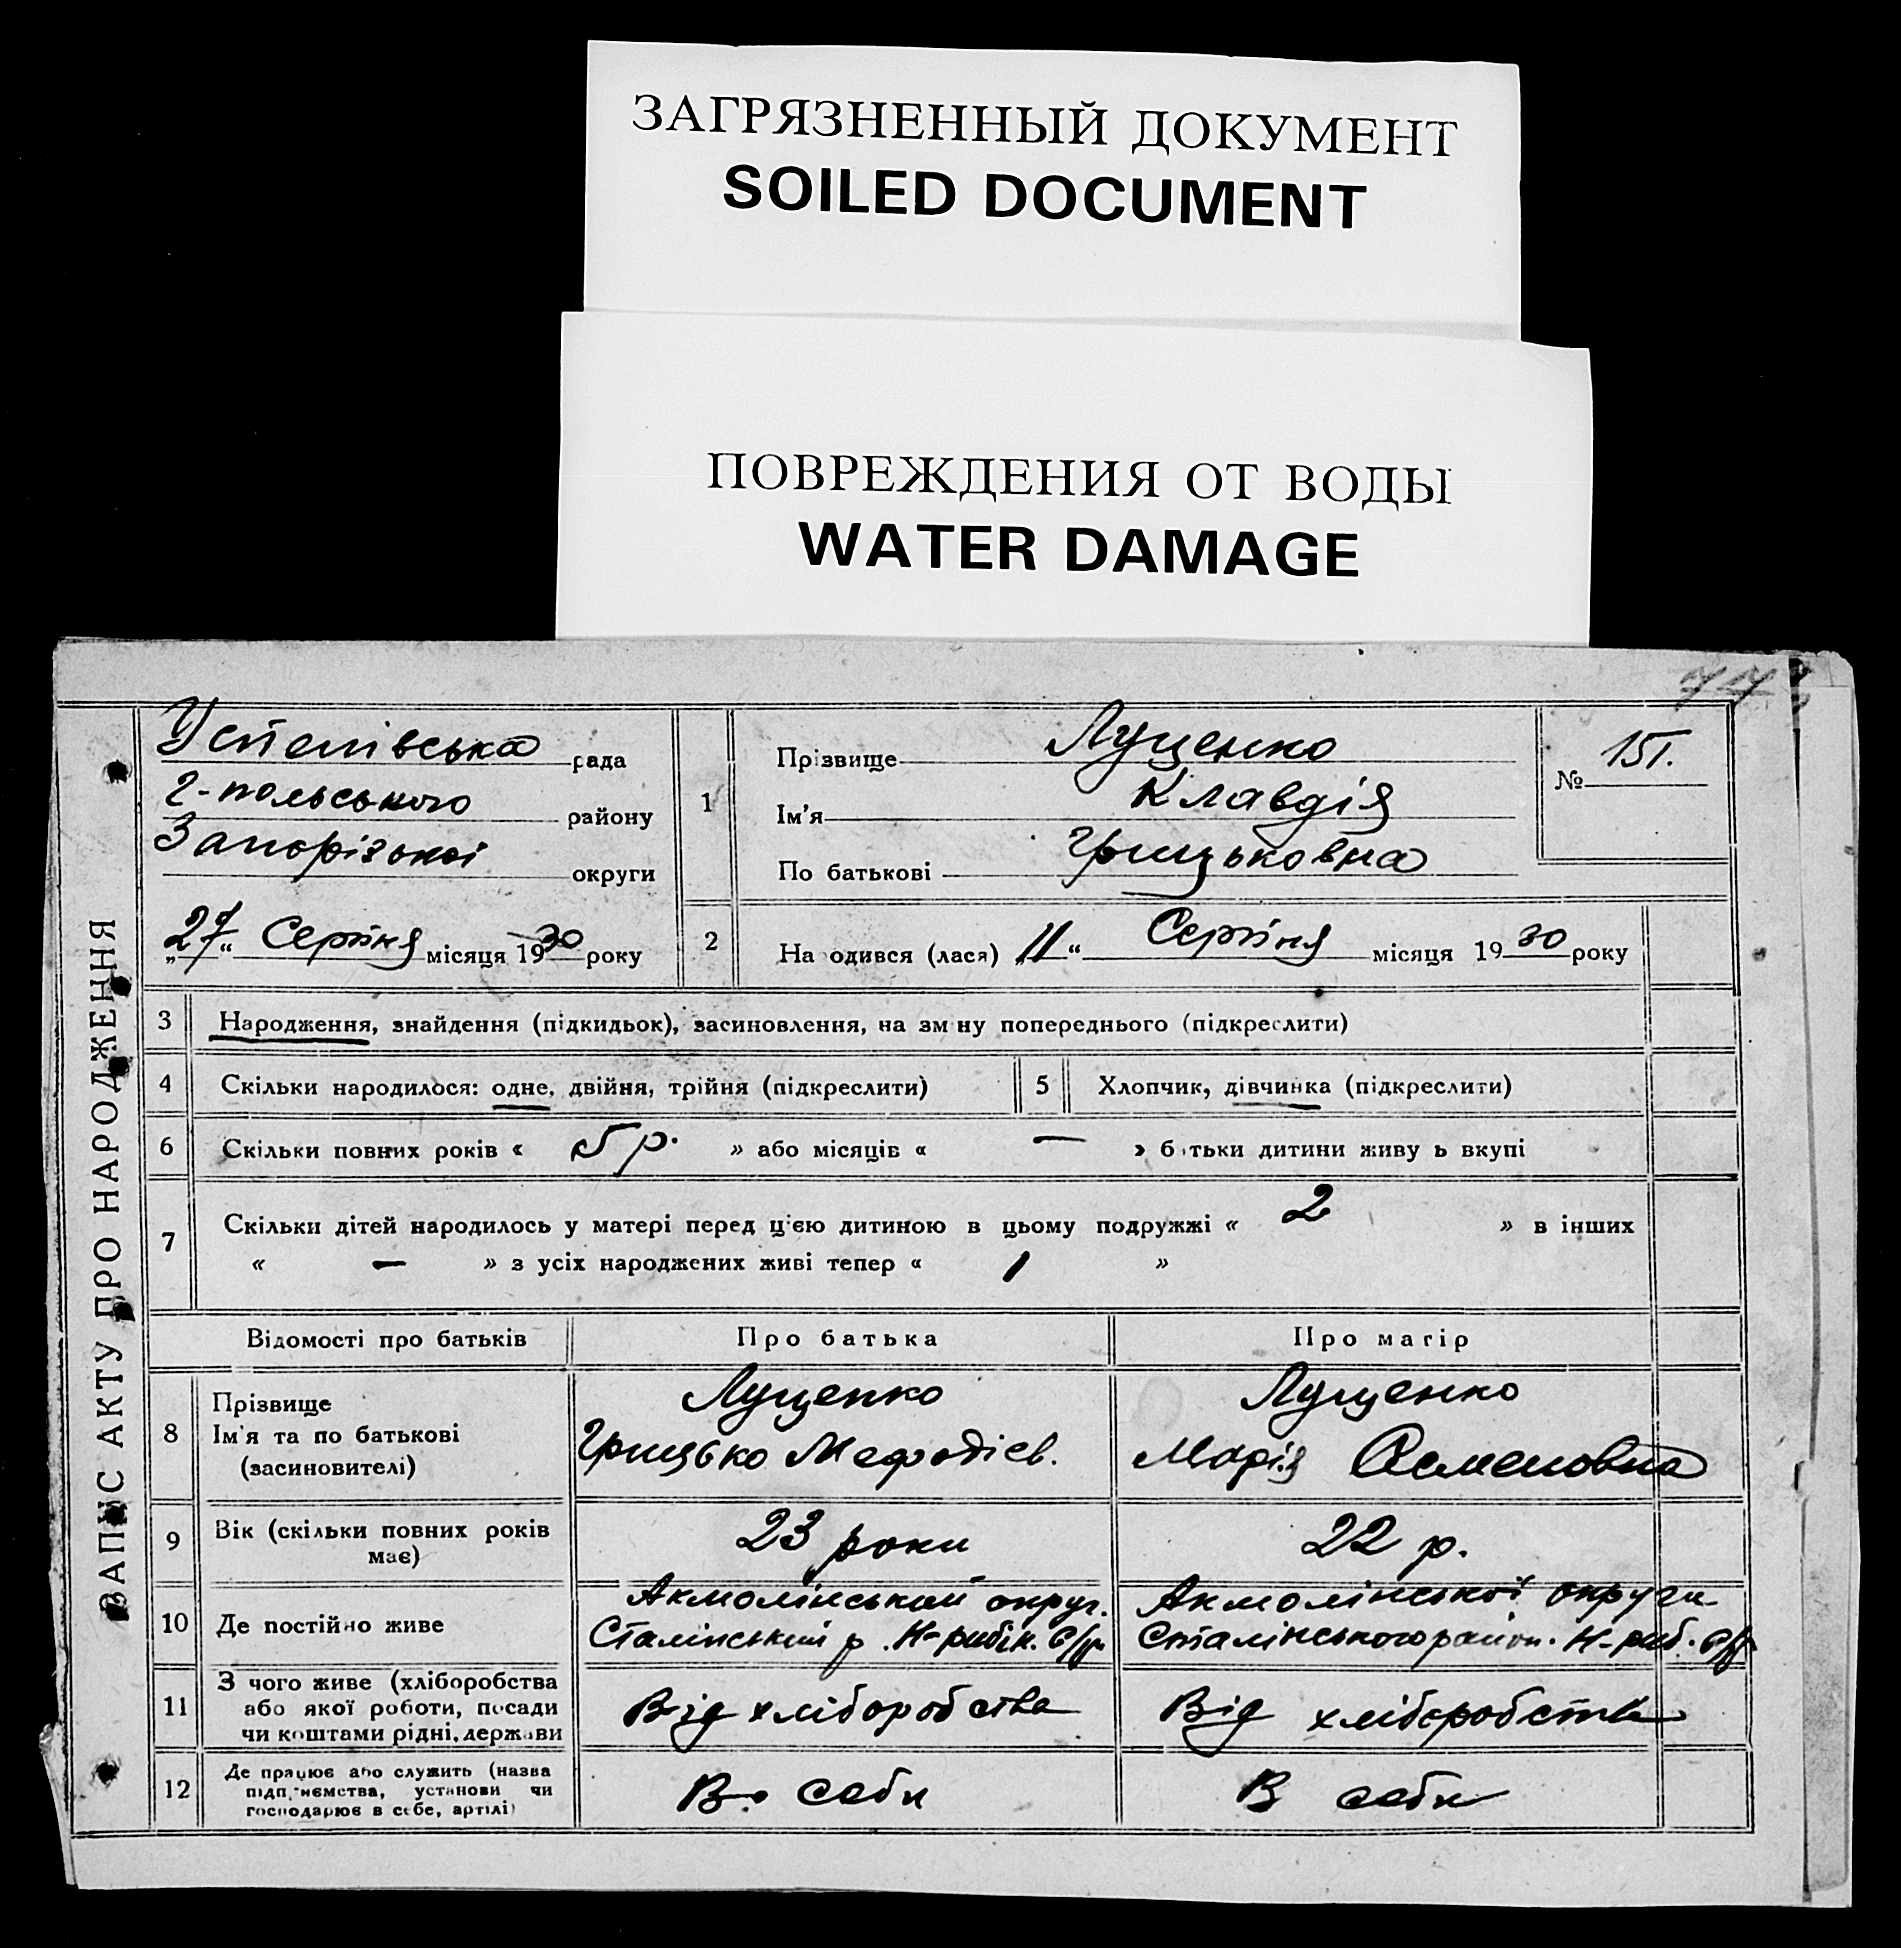 ЗАГРЯЗНЕННЫЙ ДОКУМЕНТ
SOILED DOCUMENT
ПОВРЕЖДЕНИЯ ОТ ВОДЫ
WATER DAMAGE
ЗАПИС АКТУ ПРО НАРОДЖЕННЯ
Успенівська рада
Г-польського району
Запорізької округи
„27“ Серпня місяця 1930 року
1
Прізвище Луценко
Ім'я Клавдія
По батькові Грицьковна
№ 151.
2 На одився (лася) „11“ Серпня місяця 1930 року
3 Народження, знайдення (підкидьок), засиновлення, на зм ну попереднього (підкреслити)
4 Скільки народилося: одне, двійня, трійня (підкреслити) 5 Хлопчик, дівчинка (підкреслити)
6 Скільки повних років « 5 р. » або місяців « — » б тьки дитини живу ь вкупі
7 Скільки дітей народилось у матері перед ц'єю дитиною в цьому подружжі « 2 » в інших
« — » з усіх народжених живі тепер « 1 »
Відомості про батьків Про батька Про матір
8 Прізвище
Ім'я та по батькові
(засиновителі)
Луценко
Грицько Мефодієв.
Луценко
Марія
9 Вік (скільки повних років має) 23 роки 22 р.
10 Де постійно живе
Акмолінський округ.
Сталінський р. Н-рибік. с/р
Акмолінської округи
Сталінського район. Н-риб. с/р
11 З чого живе (хліборобства
або якої роботи, посади
чи коштами рідні, держави
Від хліборобства
Від хліборобства
12 Де працює або служить (назва
підп иємства, установи чи
господарює в себе, артілі)
В. себе
В себе